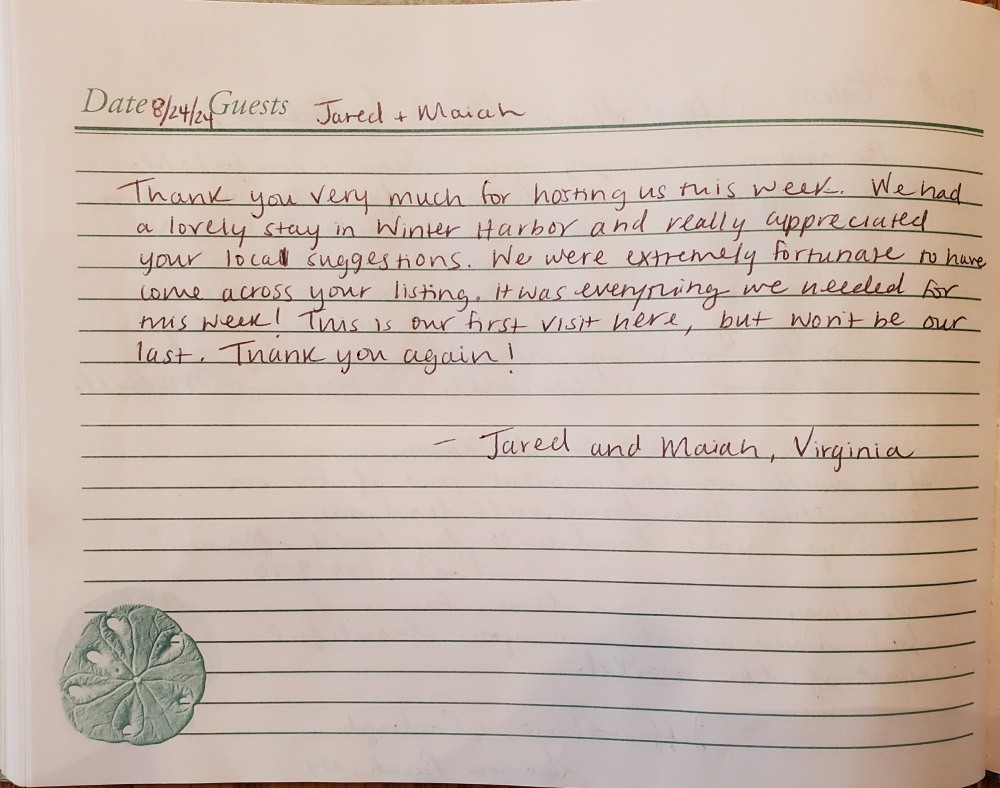 Date 8/24/24 Guests Jared + Maiah
Thank you very much for hosting us this week. We had
a lovely stay in Winter Harbor and really appreciated
your local suggestions. We were extremely fortunate to have
come across your listing. It was everything we needed for
this week! This is our first visit here, but won't be our
last. Thank you again!
- Jared and Maiah, Virginia